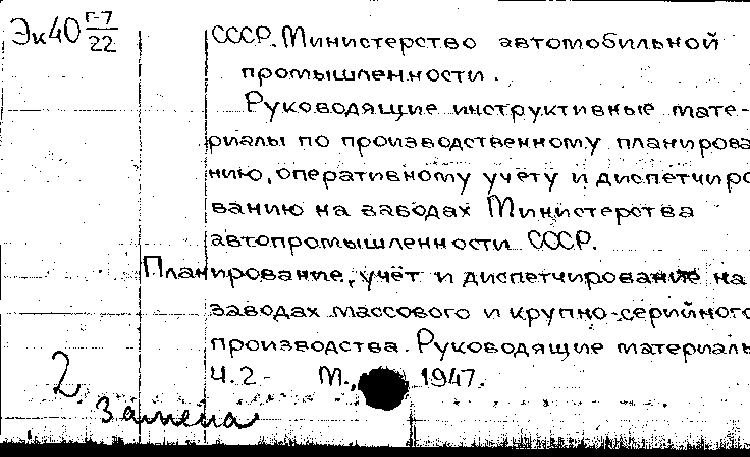 Эк40 Г-7/22
СССР. Министерство автомобильной
промышленности.
Руководящие инструктивные мате-
риалы по производственному планирова
нию, оперативному учёту и диспетчиро
ванию на заводах Министерства
автопромышленности СССР.
Планирование, учёт и диспетчирование на
заводах массового и крупно-серийного
производства. Руководящие материалы
Ч.2.- М., 1947.
2.
Замена